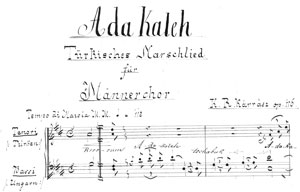 Ada Kaleh
Türkisches Marschlied
für
Männerchor
Tempo di Marcia M. M. 112
K. B. Karrász op. 115
Tenori
(Türken)
Ada Kaleh
Ada Ka
Bassi
(Ungarn)